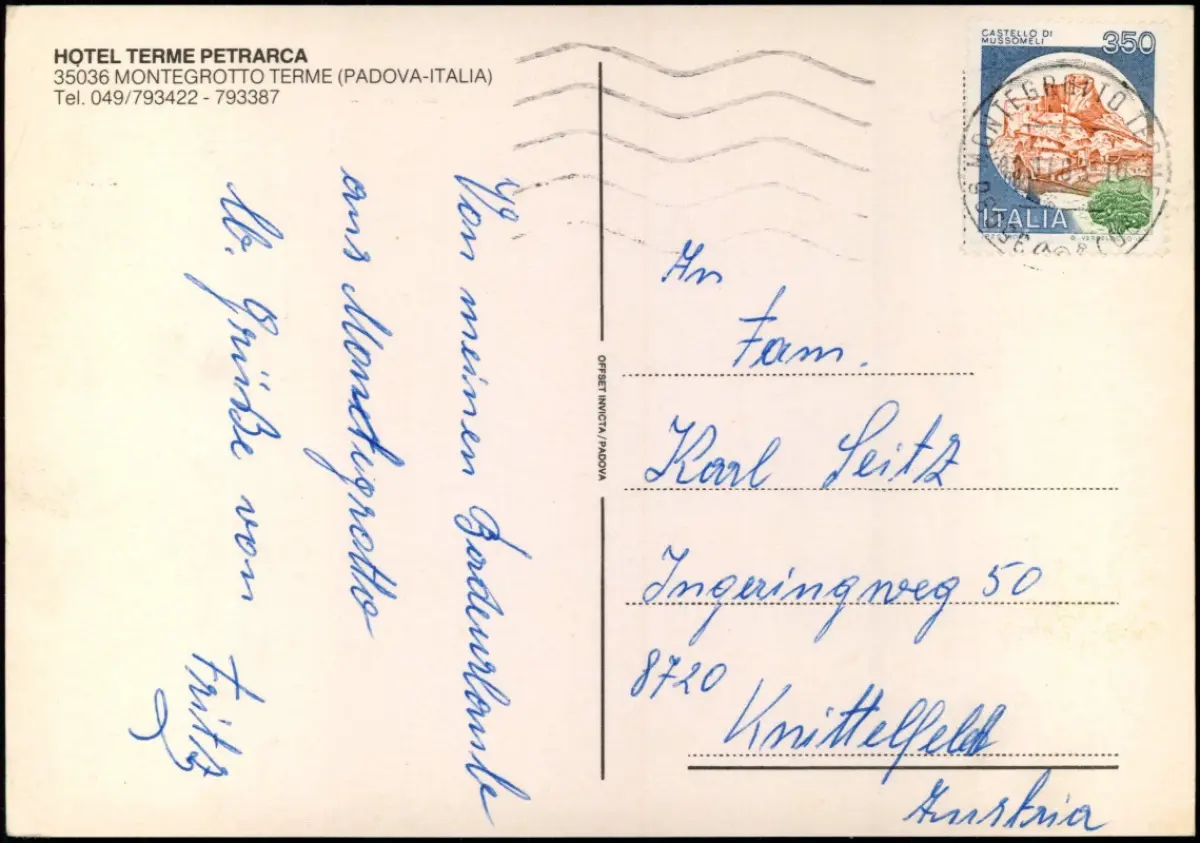 HOTEL TERME PETRARCA
35036 MONTEGROTTO TERME (PADOVA-ITALIA)
Tel. 049/793422 - 793387
CASTELLO DI
MUSSOMELI
350
ITALIA
MONTEGROTTO TERME
Von meinen Badeurlaub
aus Montegrotto
lb. Grüße von
Fritz
OFFSET INVICTA / PADOVA
An
Fam.
Karl Seitz
Ingeringweg 50
8720
Knittelfeld
Austria